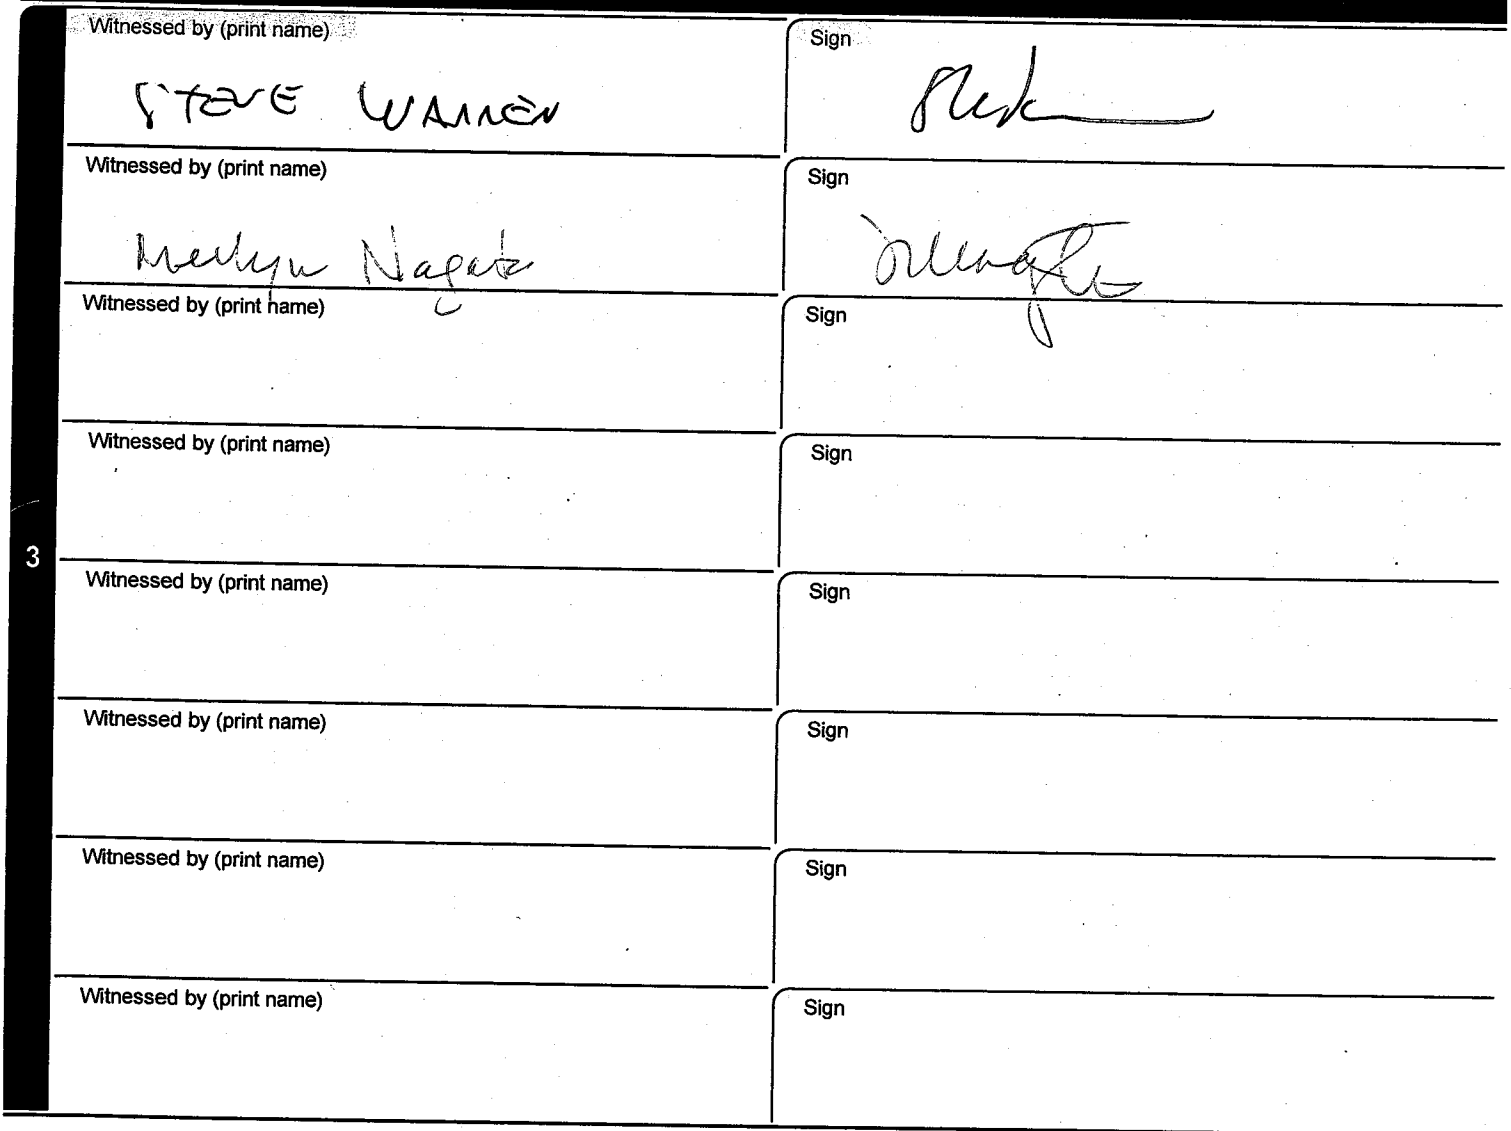 Witnessed by (print name) Sign
STEVE WARREN
Witnessed by (print name) Sign
Merlyn Nagata
Witnessed by (print name) Sign
Witnessed by (print name) Sign
3
Witnessed by (print name) Sign
Witnessed by (print name) Sign
Witnessed by (print name) Sign
Witnessed by (print name) Sign